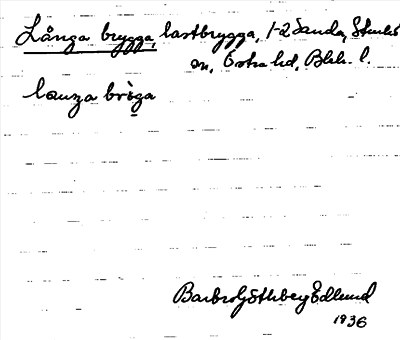 Långa brygga, lastbrygga, 1-2 Sanda, Sturkö
sn, Östra hd, Blek. l.
lauza brìga
Barbro Göthberg Edlund
1936